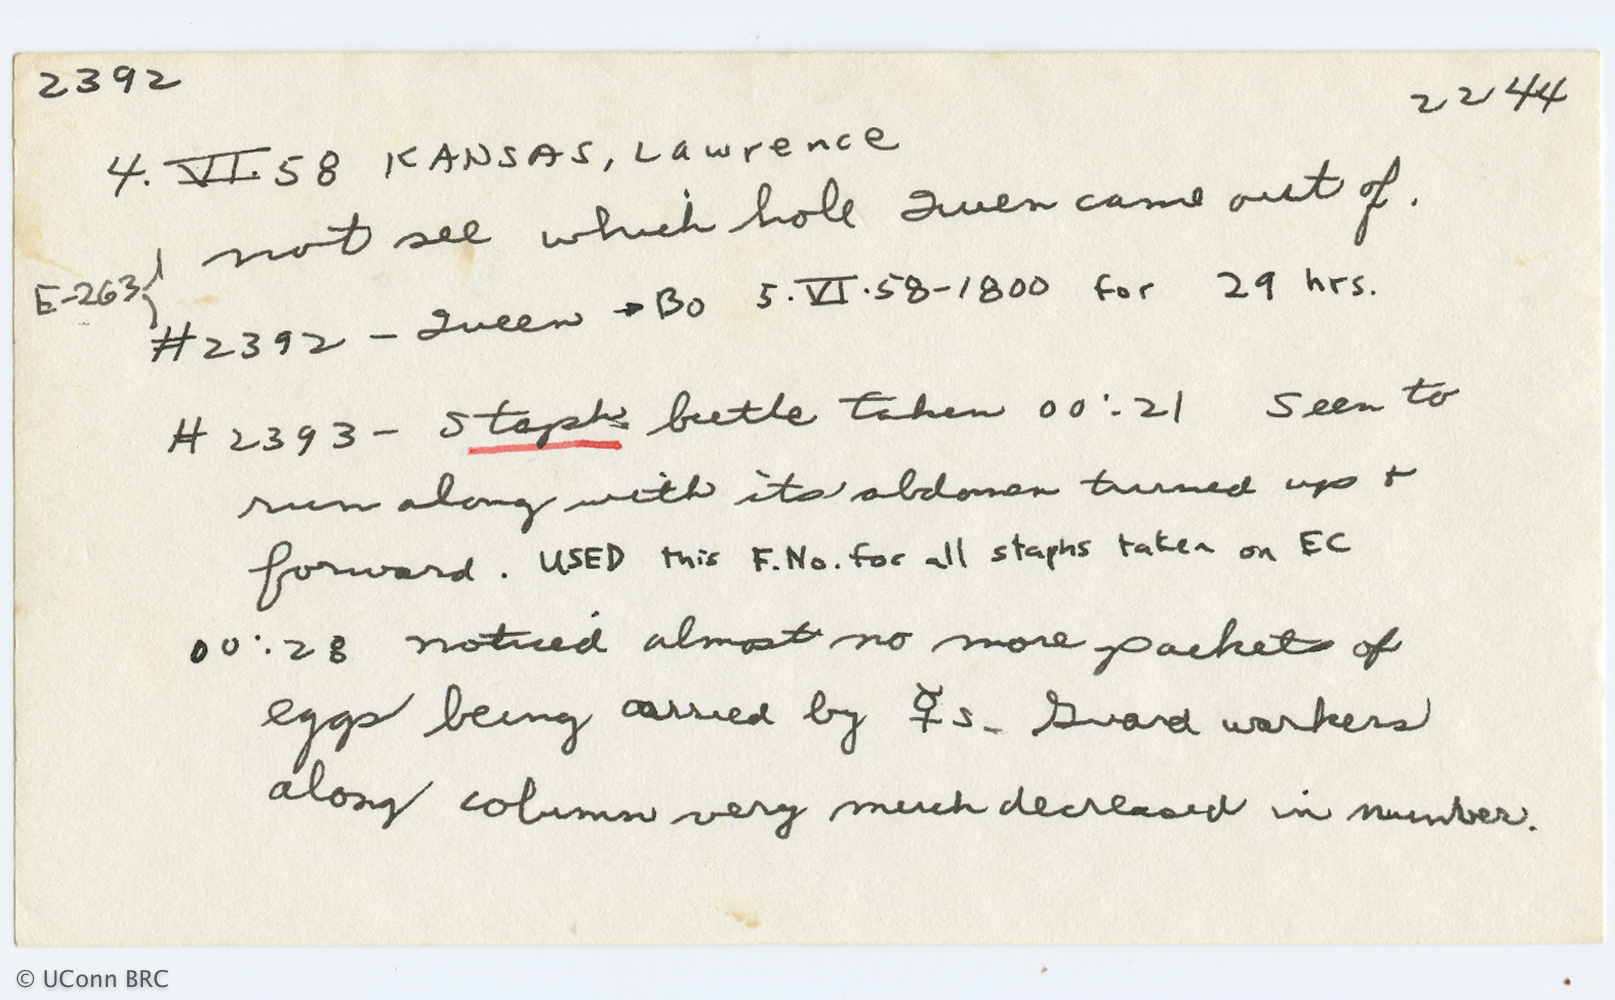 2392
2244
4.VI.58 KANSAS, Lawrence
not see which hole Queen came out of.
E-263{
#2392 - Queen → Bo 5.VI.58-1800 for 29 hrs.
#2393 - Staphs beetle taken 00:21 Seen to
run along with its abdomen turned up +
forward. USED this F.No. for all staphs taken on EC
00:28 noticed almost no more packets of
eggs being carried by ☿s. Guard workers
along column very much decreased in number.
© UConn BRC